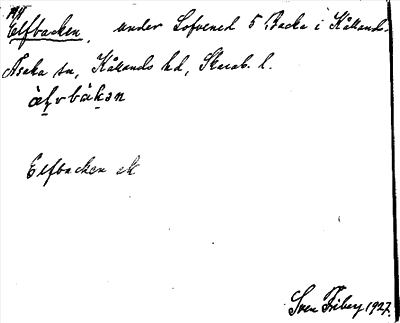 Elfbacken, under Lofvened 5 Backa i Kålland-
Åsaka sn, Kållands hd, Skarab. l.
älvbäkən
Elfbacken ek
Sven Friberg 1927.